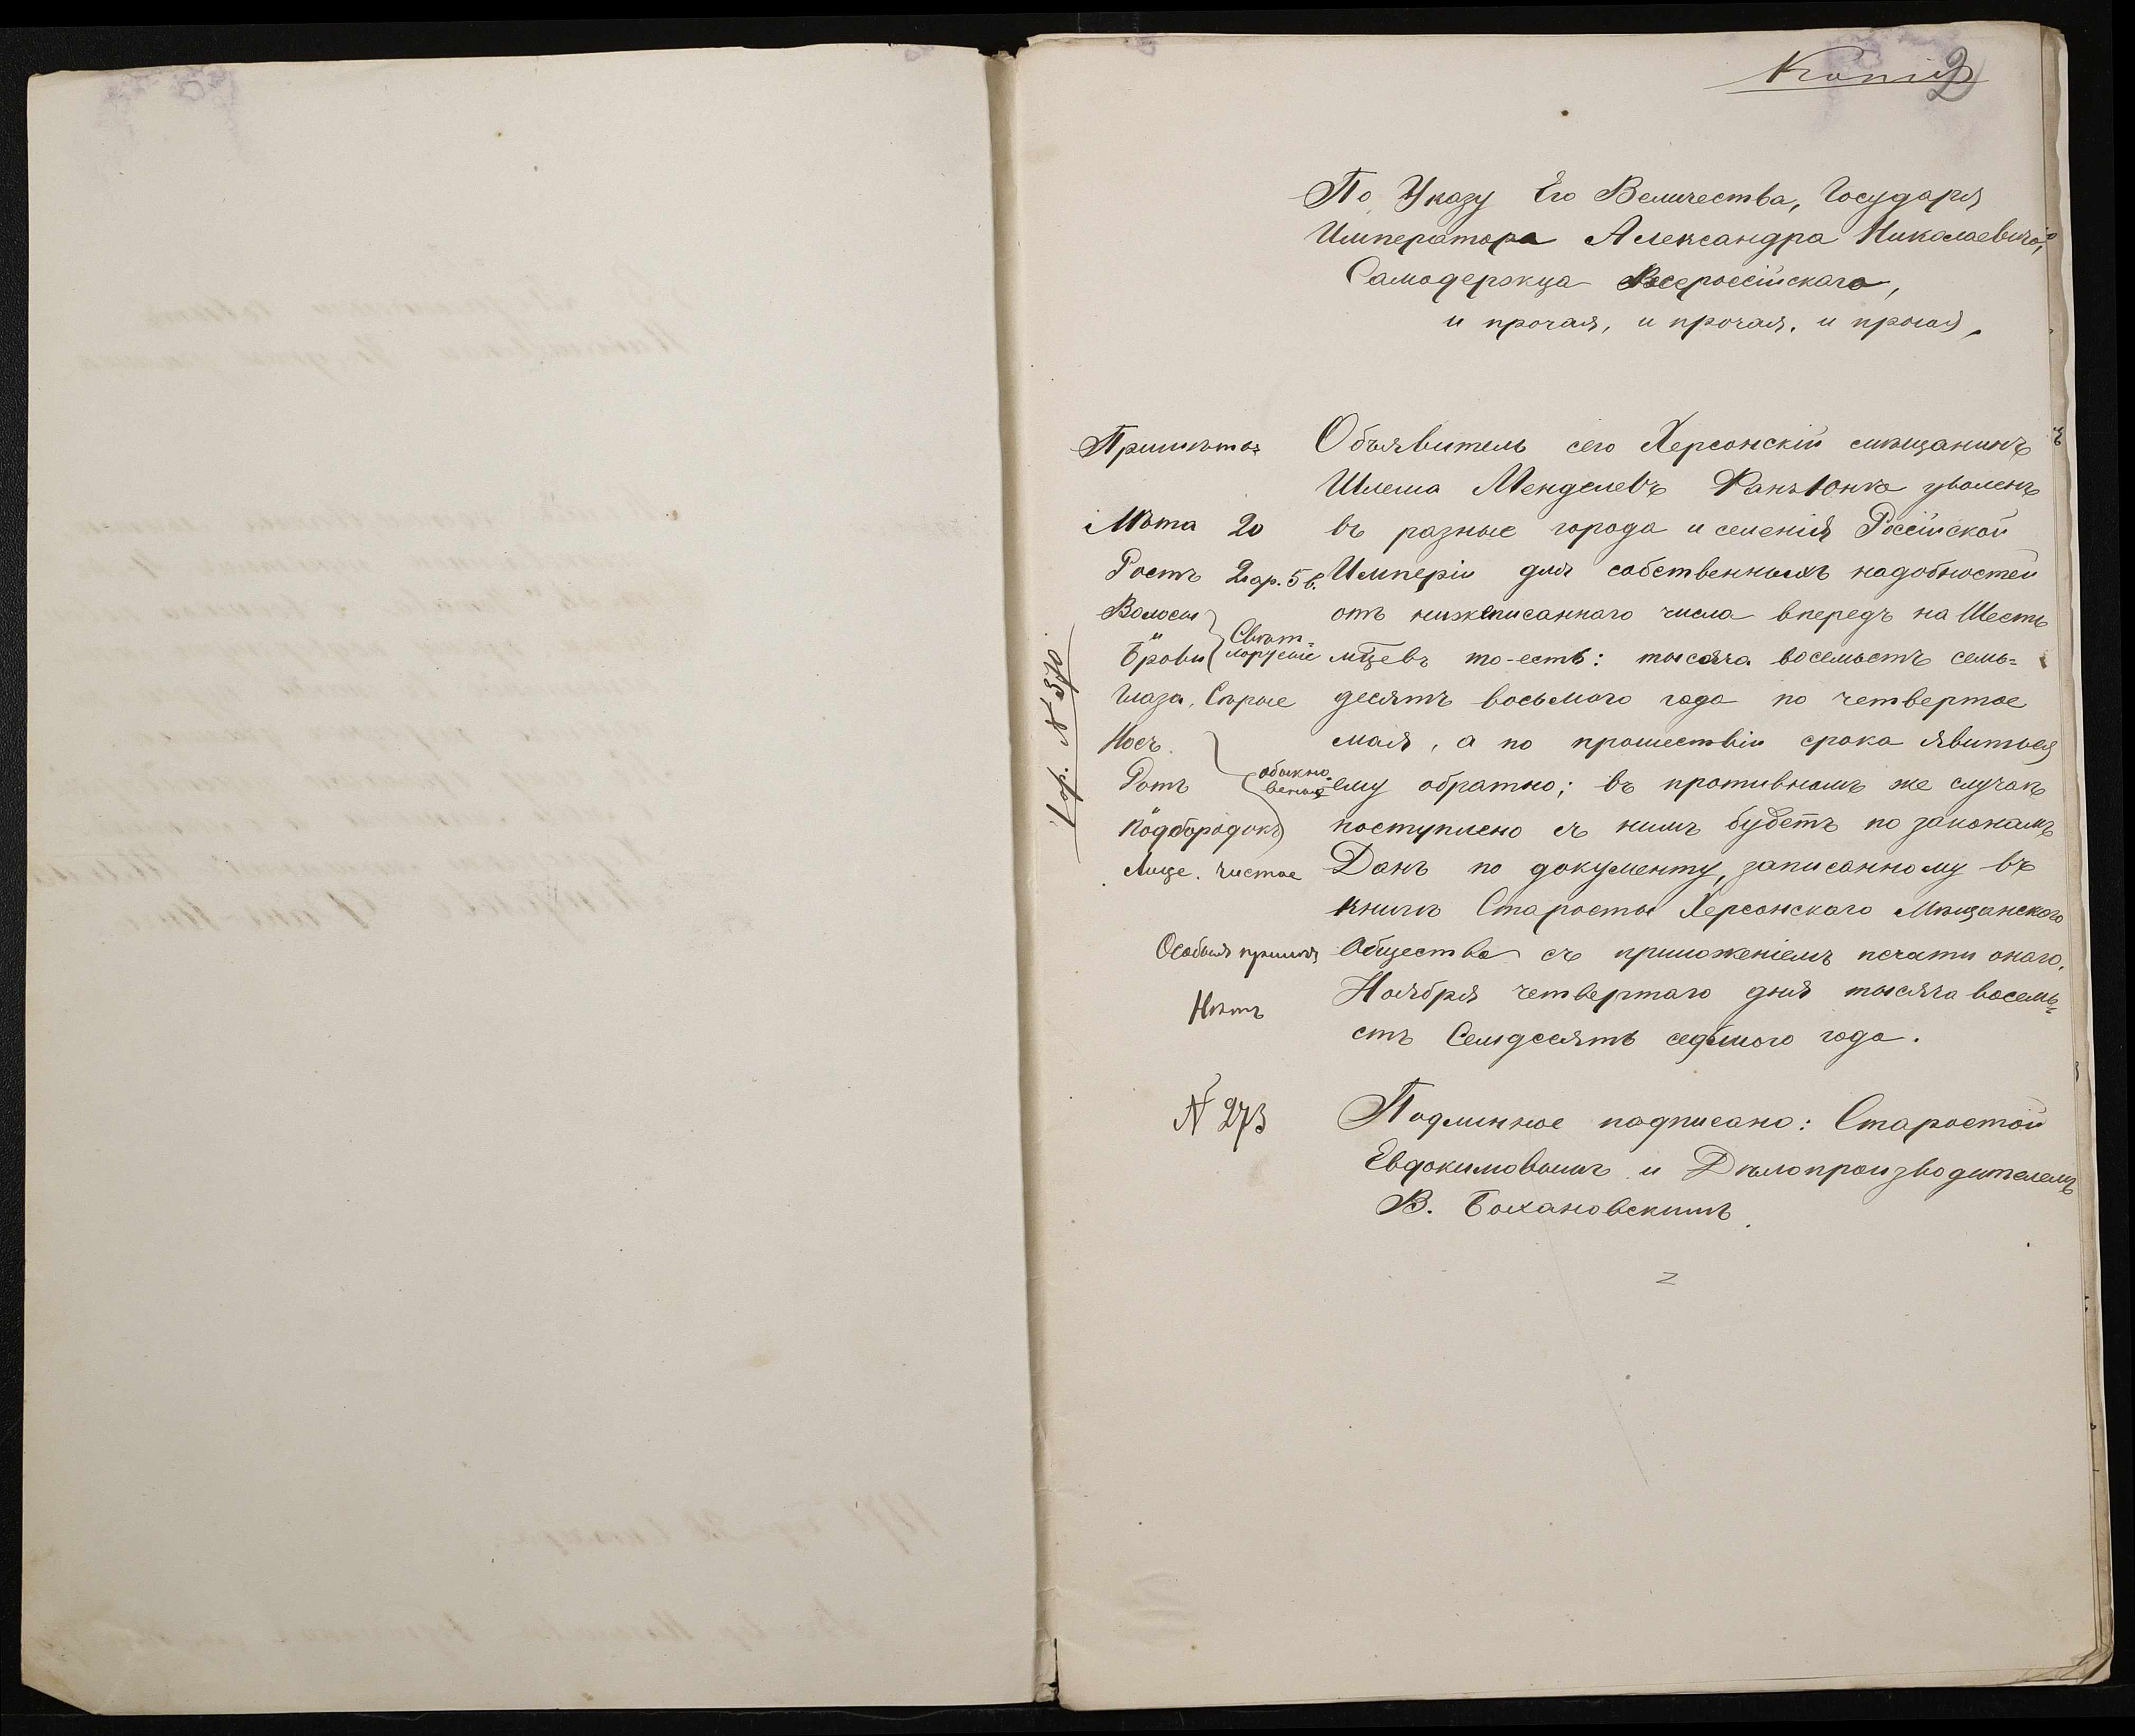 Копія
2
По Указу Его Величества, Государя
Императора Александра Николаевича,
Самодержца Всероссійскаго,
и прочая, и прочая, и прочая,
Примѣты
Лѣта 20
Ростъ 2 ар. 5 в.
Волосы
Брови
Свѣт-
лорусые
Глаза, Сѣрые
Носъ
Ротъ
обыкно-
венные
Подбородокъ
Лице. чистое
Особыя примѣты
Нѣтъ
№ 273
№ 570
Объявитель сего Херсонскій мѣщанинъ
Шлема Менделевъ уволенъ
въ разные города и селенія Россійской
Имперіи для собственныхъ надобностей
отъ нижеписаннаго числа впередъ на Шесть
мцевъ то-есть: тысяча восемьстъ семь=
десятъ восьмого года по четвертое
мая, а по прошествіи срока явиться
ему обратно; въ противномъ же случаѣ
поступлено съ нимъ будетъ по законамъ
Данъ по документу, записанному въ
книгѣ Старосты Херсонскаго Мѣщанскаго
Общества съ приложеніемъ печати онаго.
Ноября четвертаго дня тысяча восемь=
стъ Семдесятъ седьмого года.
Подлинное подписано: Старостой
Евдокимовымъ и Дѣлопроизводителемъ
В. Бохановскимъ.